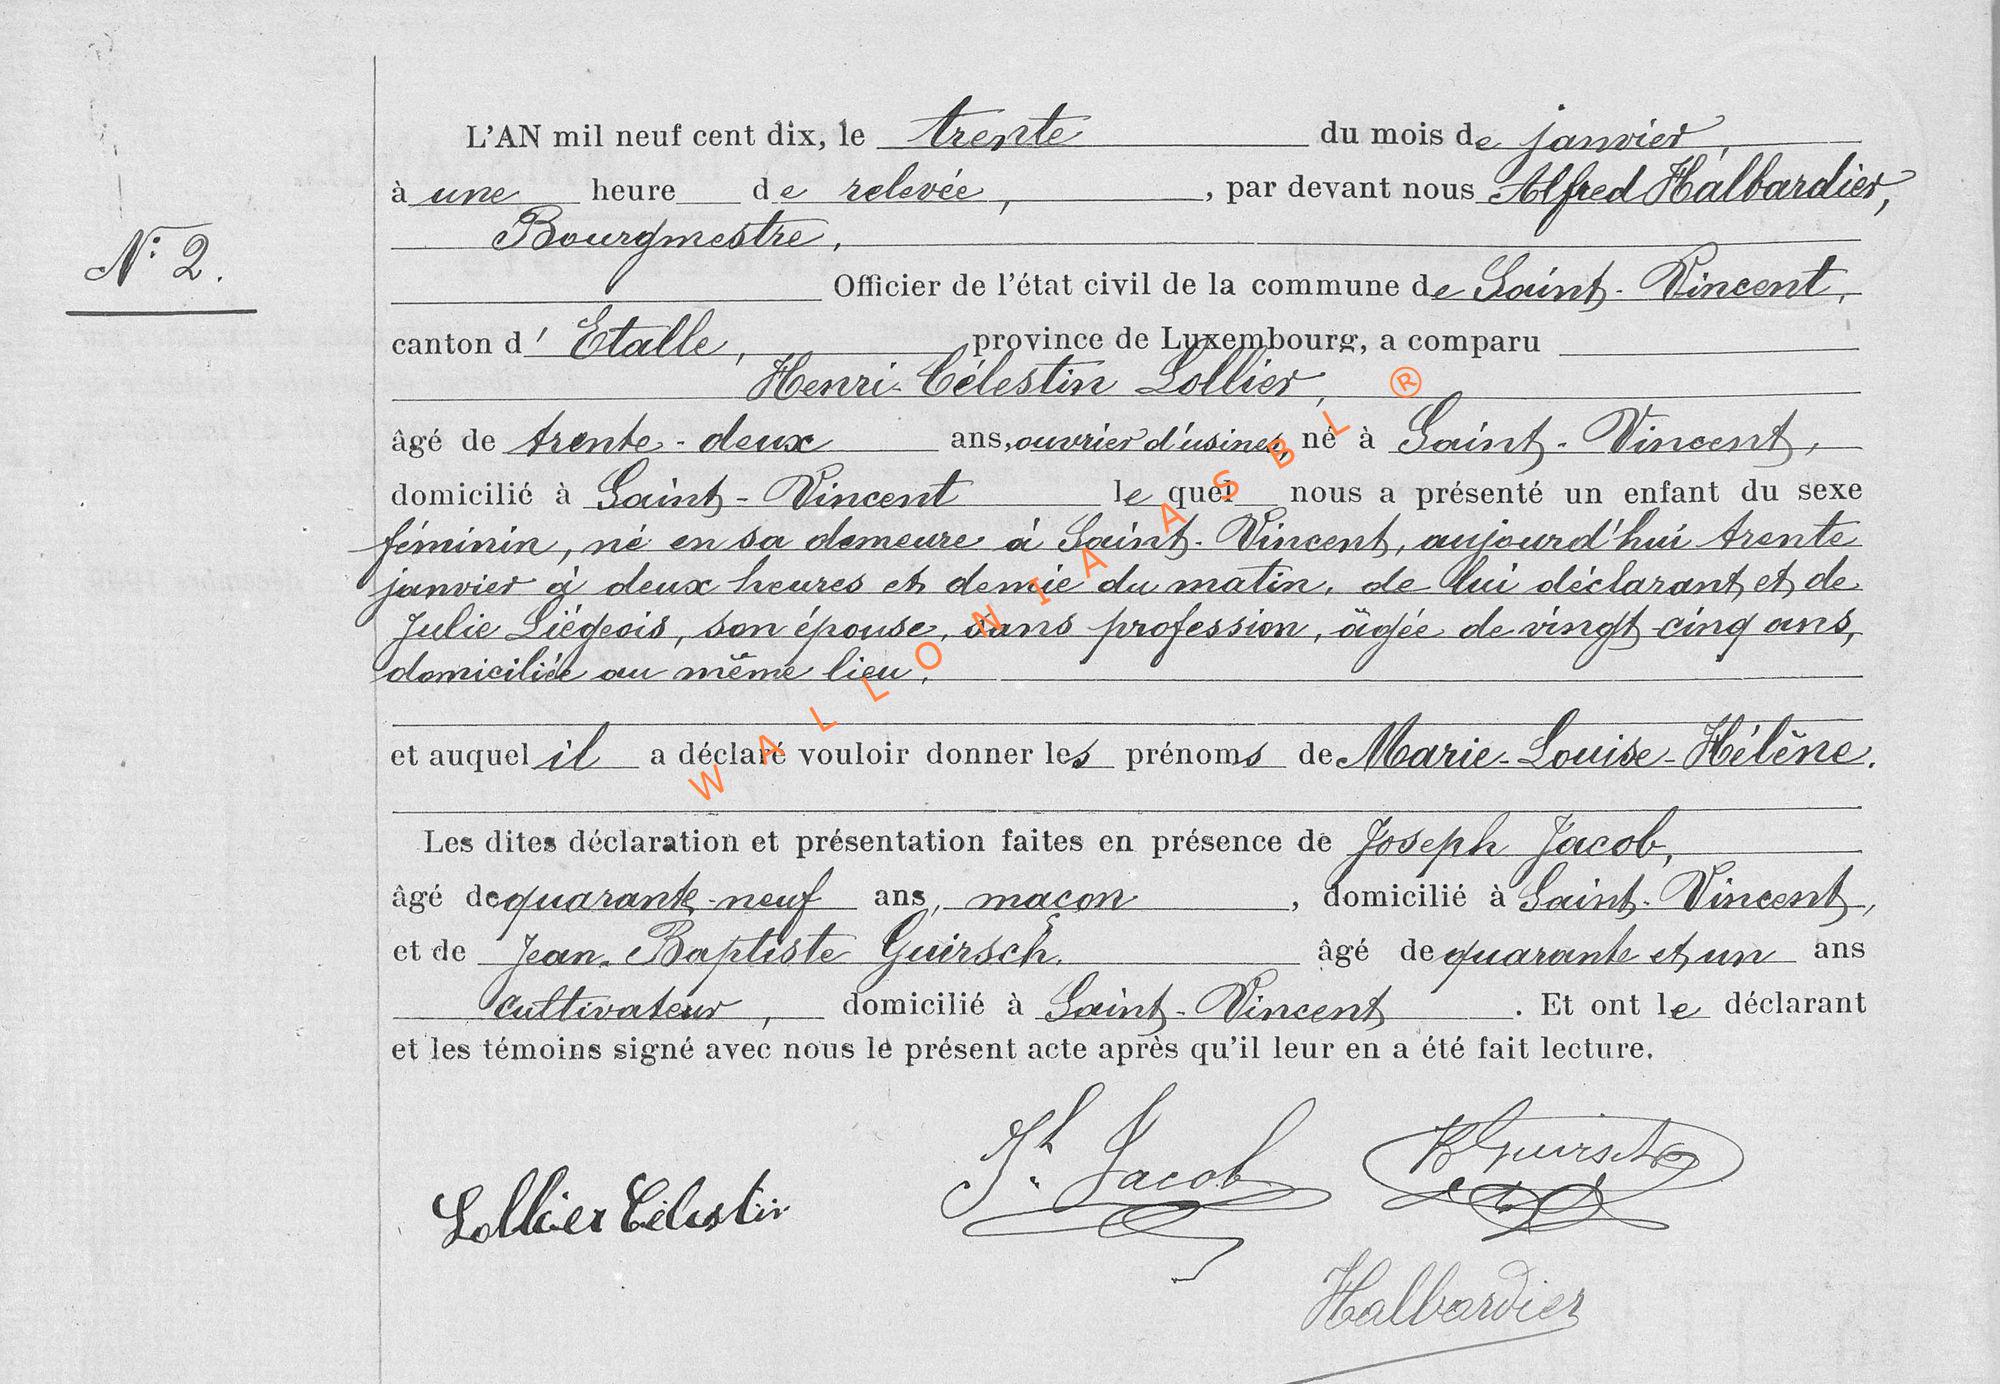 L'AN mil neuf cent dix, le trente du mois de janvier,
à une heure de relevée, , par devant nous Alfred Halbardier,
Bourgmestre,
N° 2.
Officier de l'état civil de la commune de Saint-Vincent,
canton d' Etalle, province de Luxembourg, a comparu
Henri-Célestin Lollier,
âgé de trente-deux ans, ouvrier d'usines, né à Saint-Vincent,
domicilié à Saint-Vincent le quel nous a présenté un enfant du sexe
féminin, né en sa demeure à Saint-Vincent, aujourd'hui trente
janvier à deux heures et demie du matin, de lui déclarant et de
Julie Liégeois, son épouse, sans profession, âgée de vingt-cinq ans,
domiciliée au même lieu.
et auquel il a déclaré vouloir donner les prénoms de Marie-Louise-Hélène.
Les dites déclaration et présentation faites en présence de Joseph Jacob,
âgé de quarante-neuf ans, maçon , domicilié à Saint-Vincent,
et de Jean-Baptiste Guirsch. âgé de quarante et un ans
cultivateur, domicilié à Saint-Vincent . Et ont le déclarant
et les témoins signé avec nous le présent acte après qu'il leur en a été fait lecture.
Jh. Jacob BGuirsch
Lollier Célestin
Halbardier
WALLONIA ASBL ®